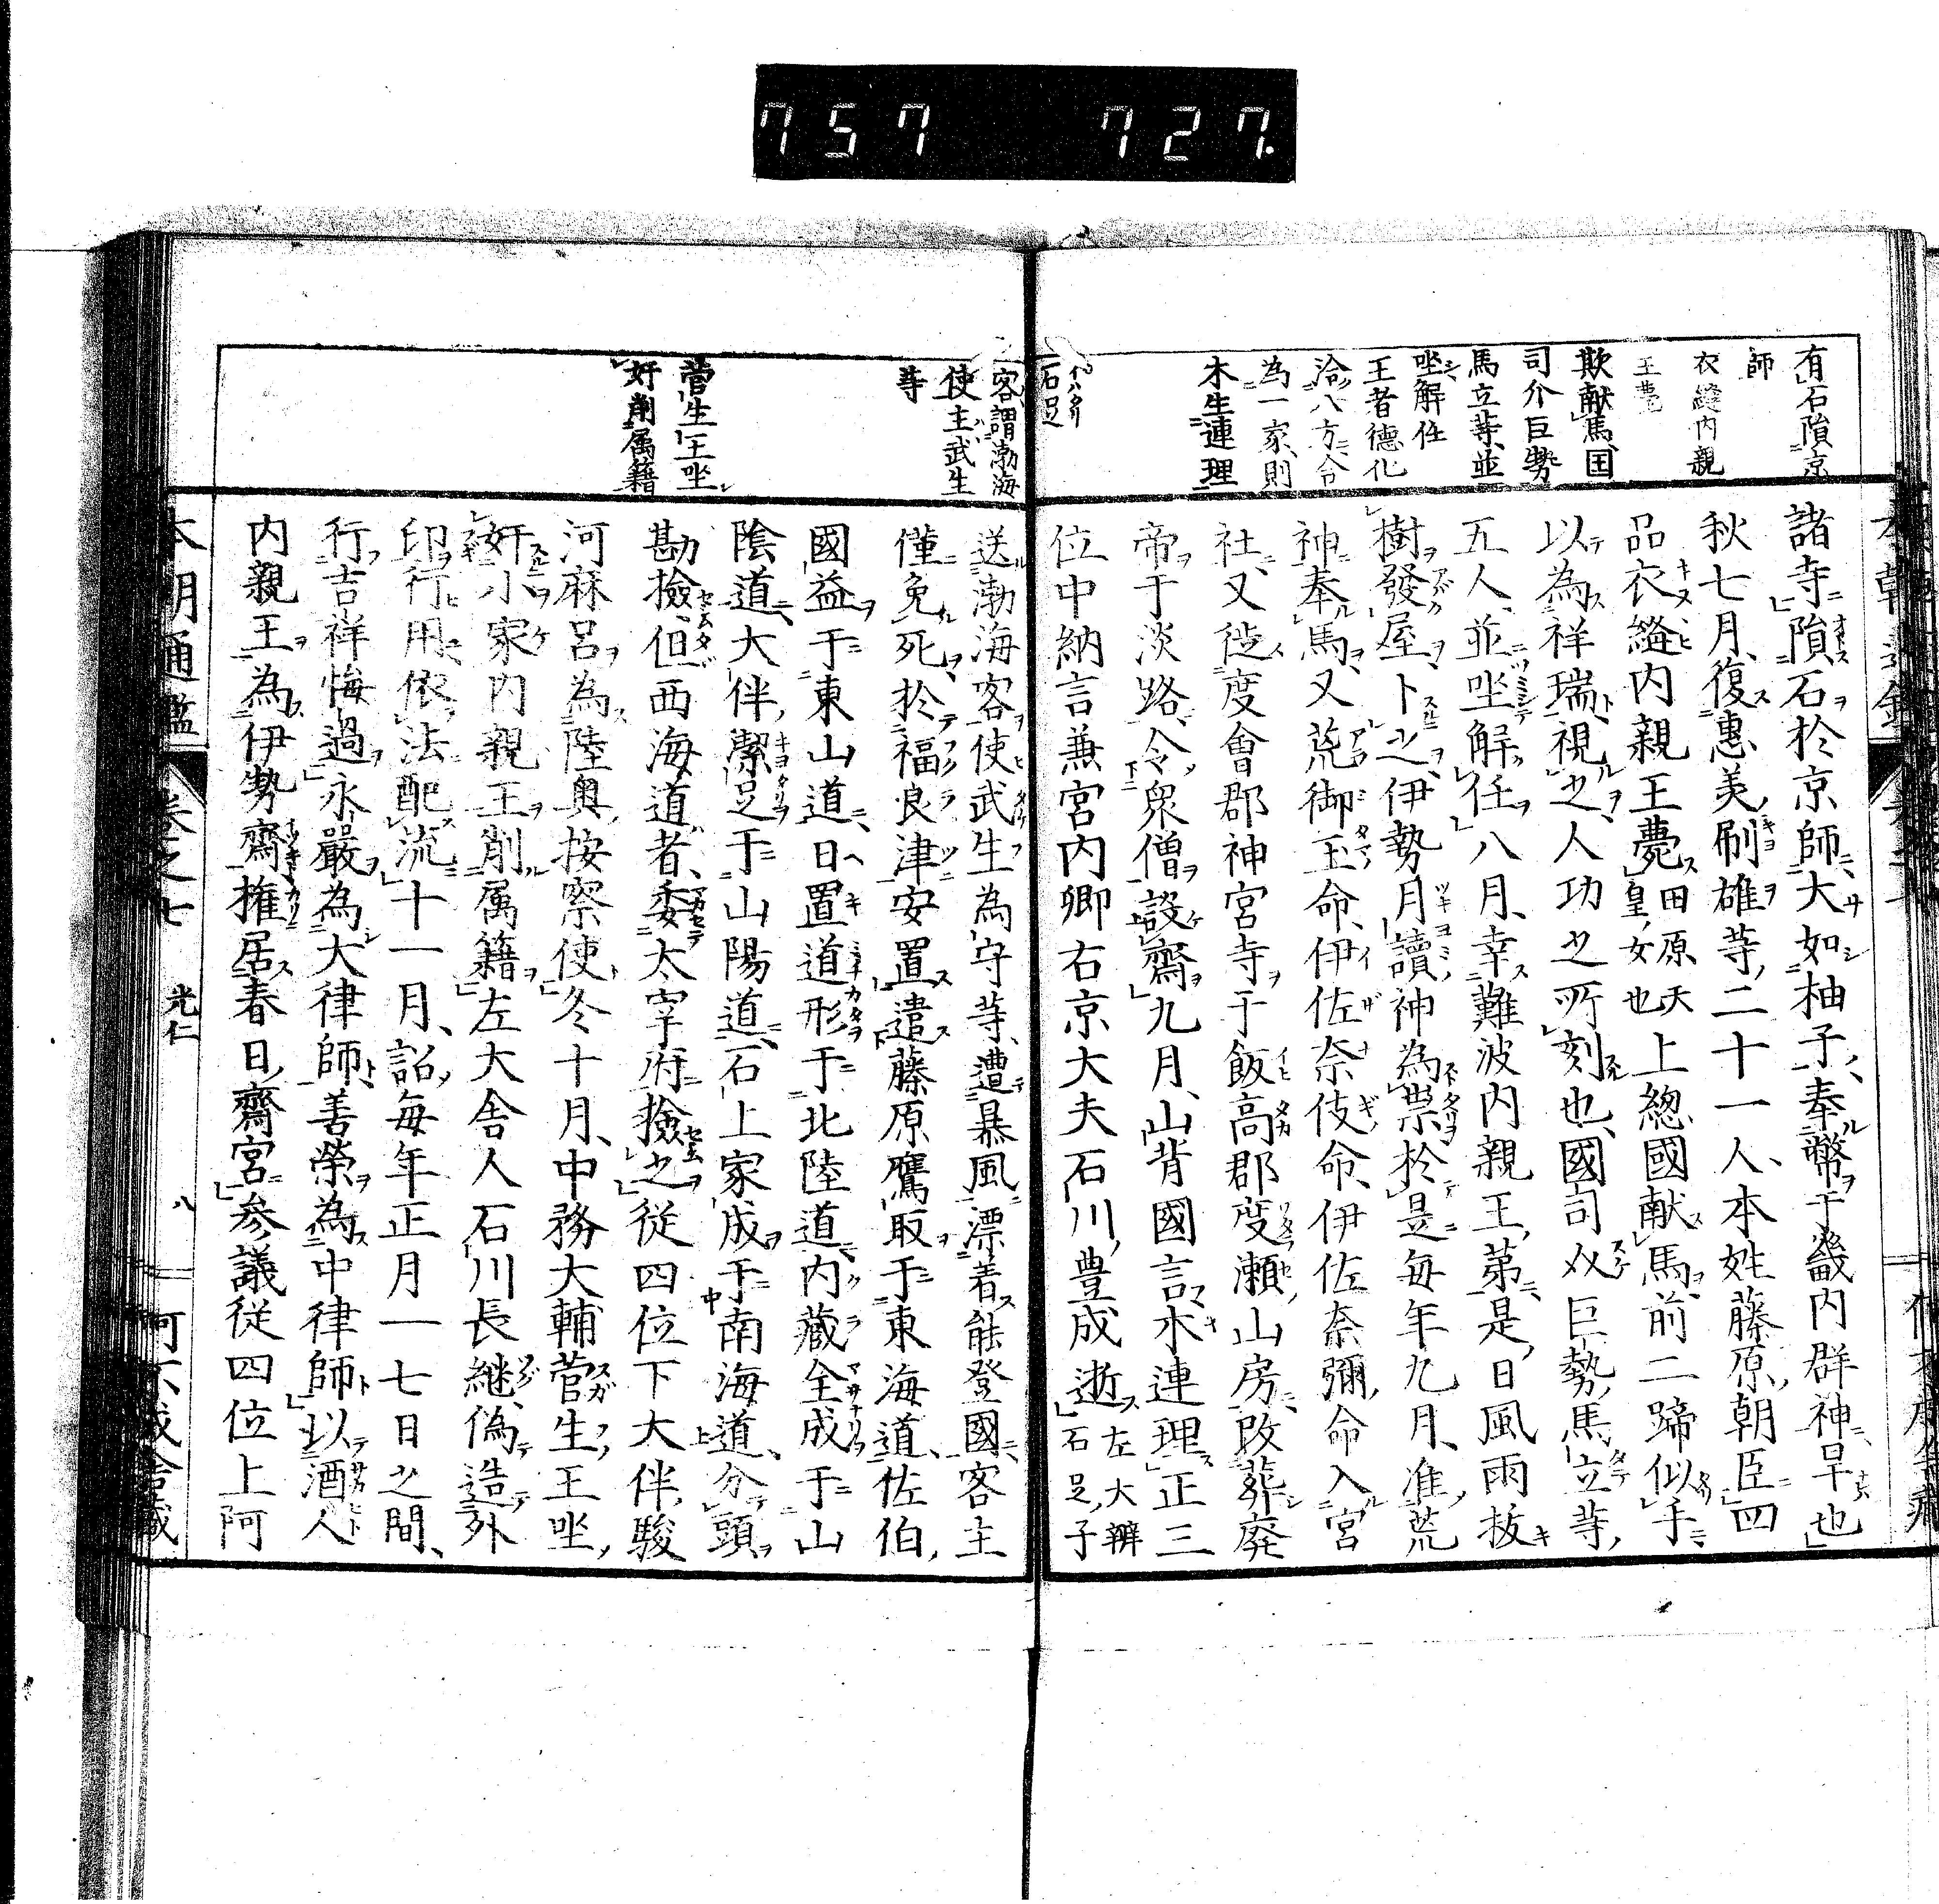 757 727.
有石隕京
師
衣縫内親
王薨
欺献馬、国
司介巨勢
馬立等、並
坐解任
王者德化
洽八方、令
為一家、則
木生連理
石足
諸寺隕石於京師、大如柚子、奉幣于畿内群神、旱也
秋七月、復惠美刷雄等、二十一人、本姓藤原朝臣四
品衣縫内親王薨田原天皇女也上総國献馬前二蹄似手
以為祥瑞、視之人功之所刻也、國司介巨勢馬立等、
五人、並坐解任八月、幸難波内親王第、是日風雨拔
樹發屋、卜之、伊勢月讀神為祟、於是每年九月、准荒
神奉馬又荒御玉命、伊佐奈伎命、伊佐奈彌命入宮
社、又徙度會郡神宮寺于飯高郡度瀬山房、改葬廃
帝于淡路、令衆僧設齋九月、山背國言、木連理正三
位中納言兼宮内卿右京大夫石川豊成逝左大辨石足子
客謂渤海
使主武生
等
菅生王坐
奸削属籍
送渤海客使武生為守等、遭暴風漂着能登國、客主
僅免死、於福良津安置遣藤原鷹取于東海道、佐伯
國益于東山道、日置道形于北陸道、内藏全成于山
陰道、大伴潔足于山陽道、石上家成于南海道、分頭
勘撿、但西海道者、委太宰府撿之從四位下大伴駿
河麻呂為陸奥按察使冬十月、中務大輔菅生王坐
奸小家内親王削属籍左大舎人石川長継、偽造外
印行用依法配流十一月、詔每年正月一七日之間、
行吉祥悔過永嚴為大律師、善榮為中律師以酒人
内親王為伊勢齋、権居春日齋宮參議従四位上阿
本朝通鑑 卷之七 光仁 八